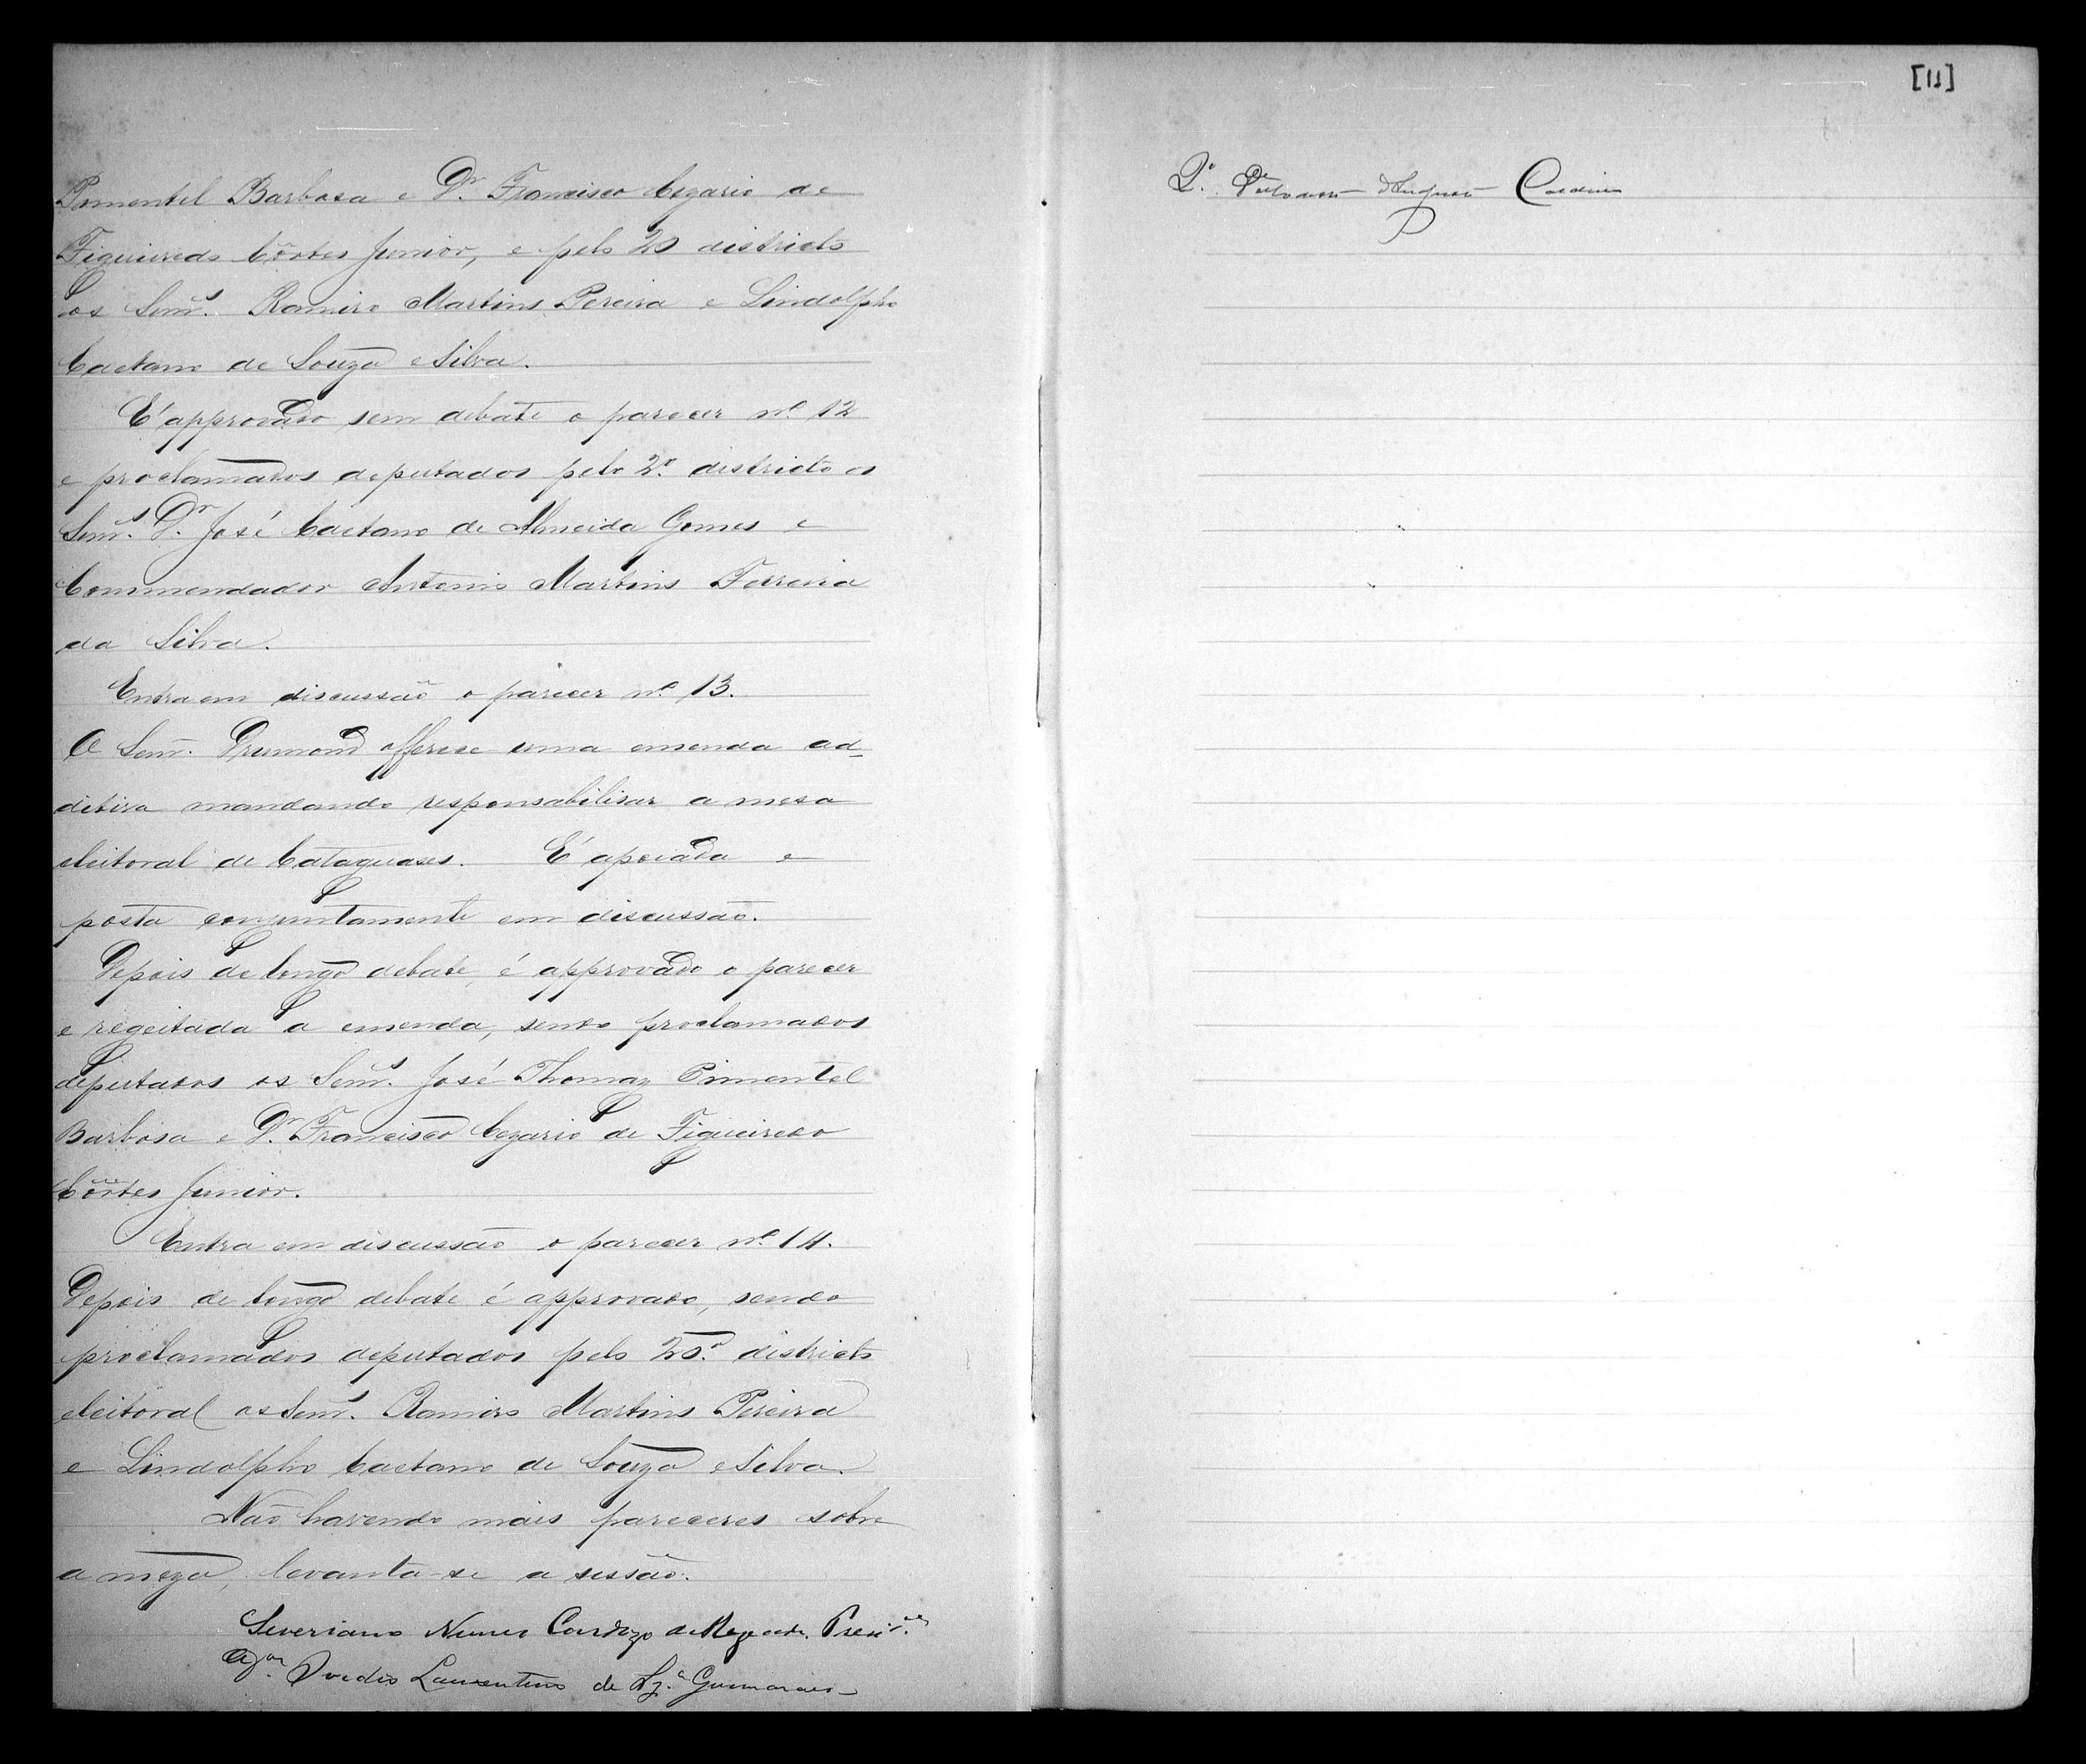 Pimentel Barbosa e Dr. Francisco Cezario de
Figueiredo Côrtes Junior, e pelo 20 districto
os Senrs. Ramiro Martins Pereira e Lindolpho
Caetano de Souza e Silva.
E' approvado sem debate o parecer nº 12
e proclamados deputados pelo 2º. districto os
Senrs. Dr. José Caetano de Almeida Gomes e
Commendador Antonio Martins Ferreira
da Silva.
Entra em discussão o parecer nº 13.
O Senr. Drumond offerece uma emenda ad-
ditiva mandando responsabilisar a mesa
eleitoral de Cataguases. E' apoiada e
posta conjuntamente em discussão.
Depois de longo debate, é approvado o parecer
e regeitada a emenda, sendo proclamados
deputados os Senrs. José Thomaz Pimentel
Barbosa e Dr. Francisco Cezario de Figueiredo
Côrtes Junior.
Entra em discussão o parecer nº 14.
Depois de longo debate é approvado, sendo
proclamados deputados pelo 20º. districto
eleitoral os Senrs. Ramiro Martins Pereira
e Lindolpho Caetano de Souza e Silva.
Não havendo mais pareceres sobre
a meza, levanta-se a sessão.
Severiano Nunes Cardozo de Rezende. Presi.te
Ovidio Laurentino de Guimarães
[11]
2º.